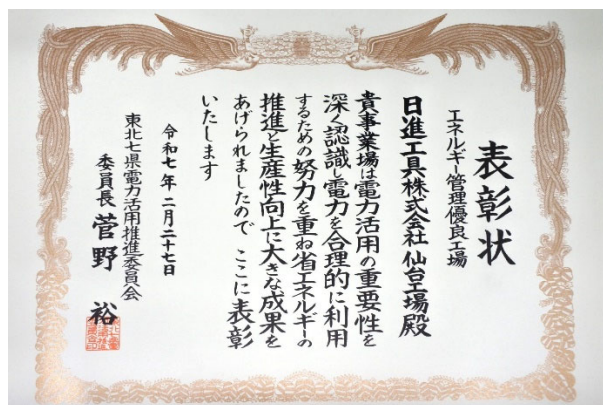 表彰状
エネルギー管理優良工場
日進工具株式会社 仙台工場殿
貴事業場は電力活用の重要性を
深く認識し電力を合理的に利用
するための努力を重ね省エネルギーの
推進と生産性向上に大きな成果を
あげられましたので ここに表彰
いたします
令和七年二月二十七日
東北七県電力活用推進委員会
委員長 菅野 裕